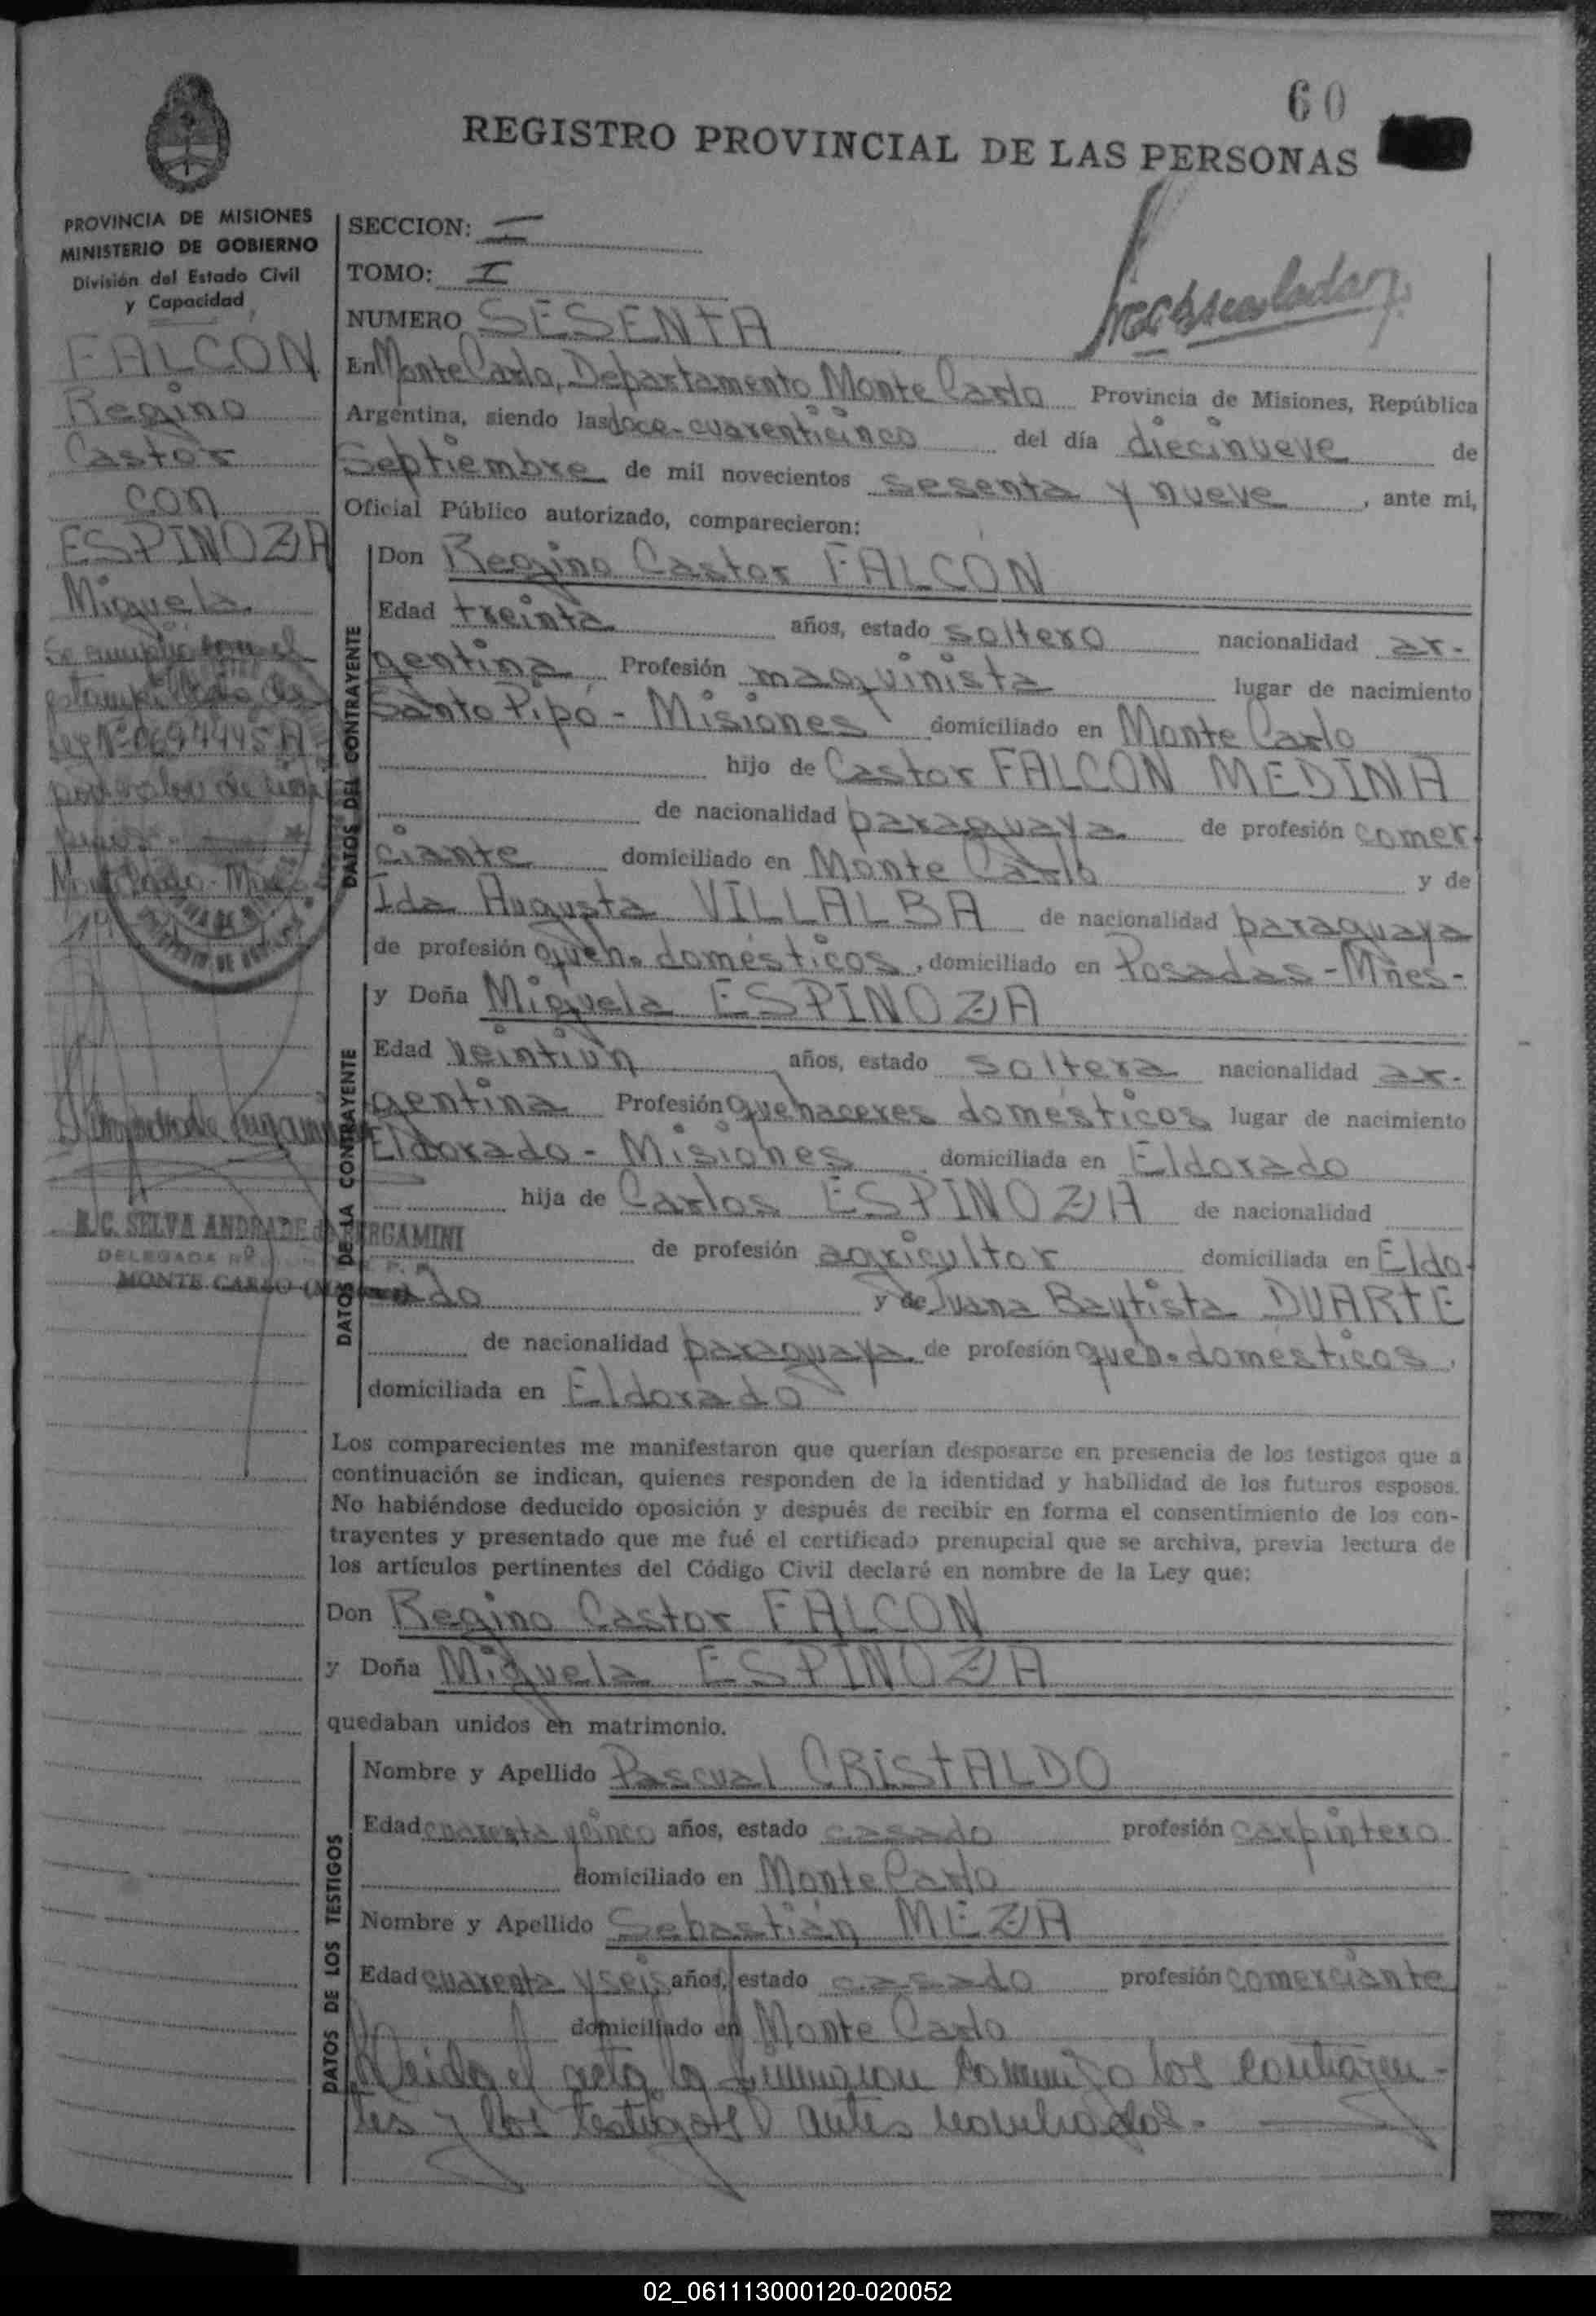 60
REGISTRO PROVINCIAL DE LAS PERSONAS
PROVINCIA DE MISIONES
MINISTERIO DE GOBIERNO
División del Estado Civil
y Capacidad
FALCON
Regino
Castor
con
ESPINOZA
Miguela
Se cumplió con el
estampillado de
Ley Nº 0694445 A
por valor de
pesos
R.C. SELVA ANDRADE de BERGAMINI
DELEGADA
MONTE CARLO
SECCION: I
TOMO: I
NUMERO SESENTA
En Monte Carlo, Departamento Monte Carlo Provincia de Misiones, República
Argentina, siendo las doce-cuarenticinco del día diecinueve de
Septiembre de mil novecientos sesenta y nueve, ante mi,
Oficial Público autorizado, comparecieron:
DATOS DEL CONTRAYENTE
Don Regino Castor FALCON
Edad treinta años, estado soltero nacionalidad ar-
gentina Profesión maquinista lugar de nacimiento
Santo Pipó - Misiones domiciliado en Monte Carlo
hijo de Castor FALCON MEDINA
de nacionalidad paraguaya de profesión comer-
ciante domiciliado en Monte Carlo y de
Ida Augusta VILLALBA de nacionalidad paraguaya
de profesión queh. domésticos, domiciliado en Posadas - Mnes-
DATOS DE LA CONTRAYENTE
y Doña Miguela ESPINOZA
Edad veintiún años, estado soltera nacionalidad ar-
gentina Profesión quehaceres domésticos lugar de nacimiento
Eldorado - Misiones domiciliada en Eldorado
hija de Carlos ESPINOZA de nacionalidad
de profesión agricultor domiciliada en Eldo-
rado y de Juana Bautista DUARTE
de nacionalidad paraguaya de profesión queh. domésticos,
domiciliada en Eldorado
Los comparecientes me manifestaron que querían desposarse en presencia de los testigos que a
continuación se indican, quienes responden de la identidad y habilidad de los futuros esposos.
No habiéndose deducido oposición y después de recibir en forma el consentimiento de los con-
trayentes y presentado que me fué el certificado prenupcial que se archiva, previa lectura de
los artículos pertinentes del Código Civil declaré en nombre de la Ley que:
Don Regino Castor FALCON
y Doña Miguela ESPINOZA
quedaban unidos en matrimonio.
DATOS DE LOS TESTIGOS
Nombre y Apellido Pascual CRISTALDO
Edad cuarenta y cinco años, estado casado profesión carpintero
domiciliado en Monte Carlo
Nombre y Apellido Sebastián MEZA
Edad cuarenta y seis años, estado casado profesión comerciante
domiciliado en Monte Carlo
Leida el acta la firmaron conmigo los contrayen-
tes y los testigos antes nombrados.-
02_061113000120-020052